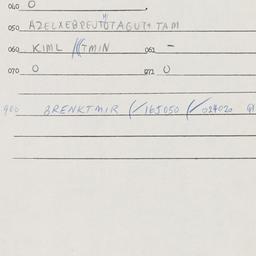 040 O
050 AZELXEBPEUTOTAGUT+TAM
060 KIML TMIN 061 –
070 O 071 O
900 BRENKTMIR (/165050 (/024020